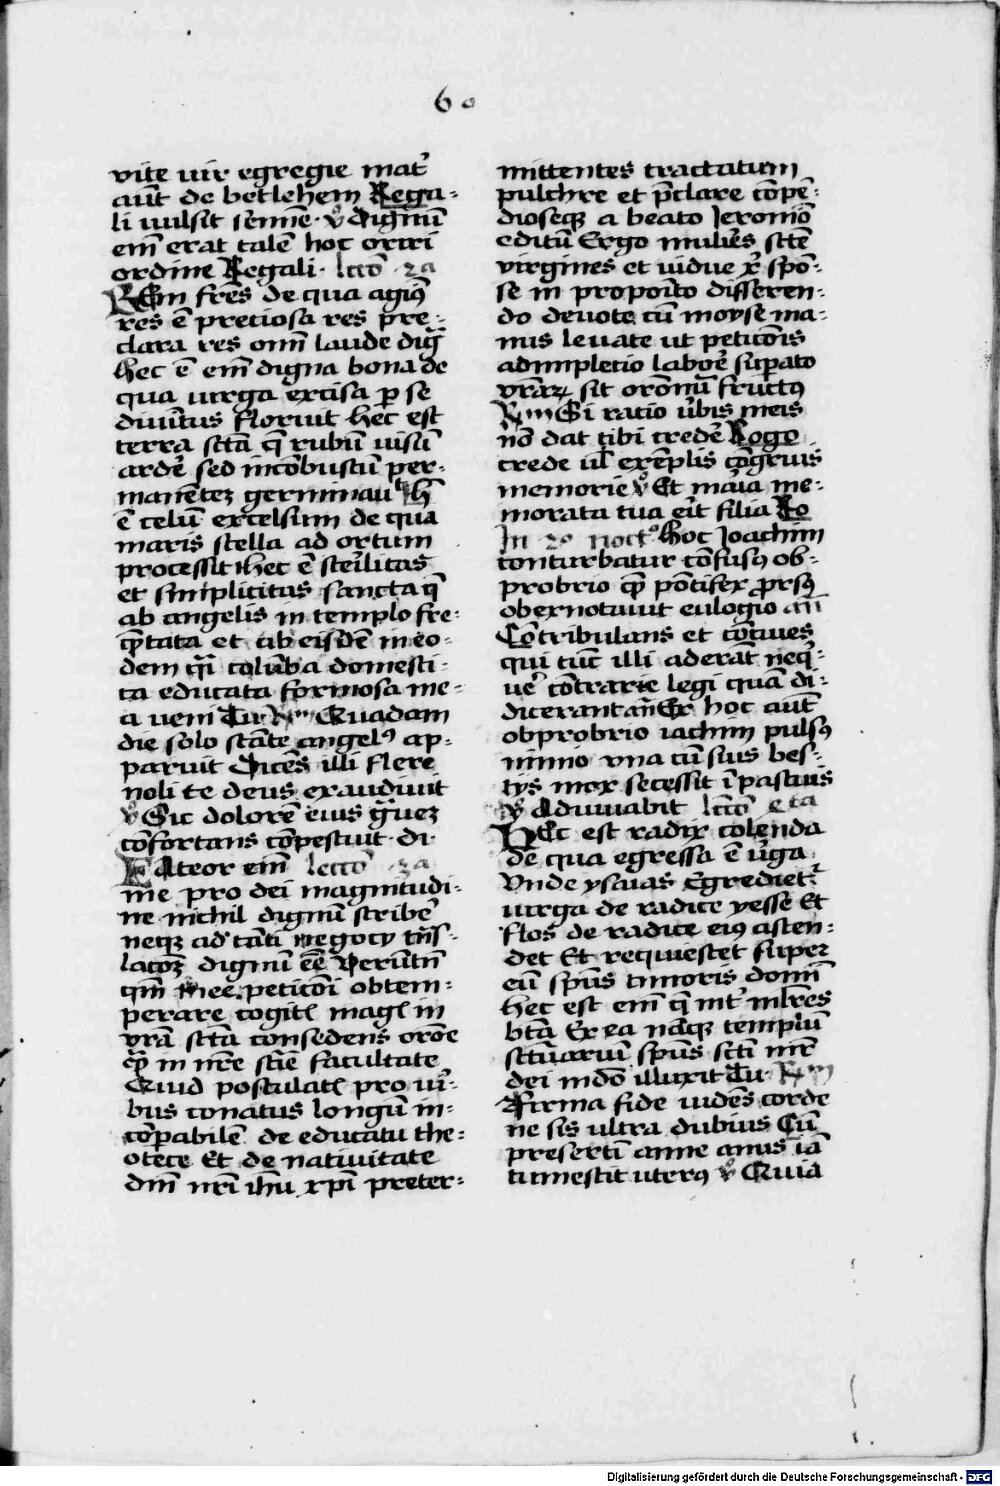 60
vite uir egregie mat᷒
aūt de betlehem Rega-
li uulsit semīe · v᷒ Dignū
em̄ erat talē hoc oriri
ordine Regali · lcc̄o 2a
REm fr̄es de qua agim᷒
res ē preciosa res pre-
clara res om̄i laude diḡ
hec ē em̄ digna bona de
qua uirga excisa p se
diuīitus floruit hec est
terra sc̄tā q̄ rubū uisū
ardē sed incōbustū per-
manētez germinauit h̄
ē celū excelsum de qua
maris stella ad ortum
processit hec ē sterīlitas
et simplicitas sancta q̄
ab angelis in templo fre-
q̄ntata et ab eisdē in eo-
dem q̄i colūba domesti-
ca educata formosa me-
a veni Tu · Rm Quadam
die solo stāte angel᷒ ap-
paruit Dicēs illi flere
noli te deus exaudiuit
v᷒ Sic dolorē eius q̄uez
cōfortans cōpescuit · di ·
FAteor em̄ lecc̄o 3a
me pro dei magnitudi-
ne nichil dignū scribe᷒
neqz ad tāti negocy trn̄s-
lacōz dignū eē̄ Verūtn̄
qm̄ mee peticōi obtem-
perare cogitꝭ magꝭ in
vrā sc̄tā consedens orōe
q̄ in nr̄e sc̄ie facultate
Quid postulatꝭ pro ui᷒-
bus conatus longū in-
cōpabilē de educatu the-
otece Et de natiuitate
dm̄ nr̄i ih̄u xp̄i preter-
mittentes tractatum
pulchre et p̄clare cōpē-
dioseqz a beato Jeronīo
editū Ergo mulie᷒s sc̄tē
virgines et uidue xī spō-
se in propoīto differen-
do deuote cū moyse ma-
nus leuate ut peticōis
adimpletio laboē suparato
vrāꝝ sit orōnū fructus
Rm Si ratio u᷒bis meis
nō dat tibi credē Rogo
crede ul̄ exēplis cōgruis
memorie v᷒ Et mar̄ia me-
morata tua eīt filia Ro
In 2o noct᷒o Hoc Joachim
conturbatur cōfus᷒ ob-
probrio q̄ pōtifex prors᷒
obexnotauit eulogio an̄
Cōtribulans et cōciues
qui tūc illi aderāt neq᷒-
ue᷒ cōtrarie legi quā di-
dicerant an̄ Ex hoc aūt
obprobrio iachim puls᷒
nimio vna cū suis bes-
tijs mox secessit ī pascuis
v᷒ Adiuuabit lcc̄o 4ta
HEc est radix colenda
de qua egressa ē u᷒ga
Vnde ysaias Egrediet᷒
uirga de radice yesse Et
flos de radice ei᷒ ascen-
det Et requiescet super
eū spūs timoris domī
hec est em̄ q̄ int᷒ ml̄res
btā Ex ea nāqz templū
sctūariū spūs sc̄ti mr̄
dei mdō illuxit Tu · Rm
Firma fide uidēs corde
ne sis ultra dubius Cū
presertī anne anus iā
tumescit uter᷒ v᷒ Quia
Digitalisierung gefördert durch die Deutsche Forschungsgemeinschaft - DFG